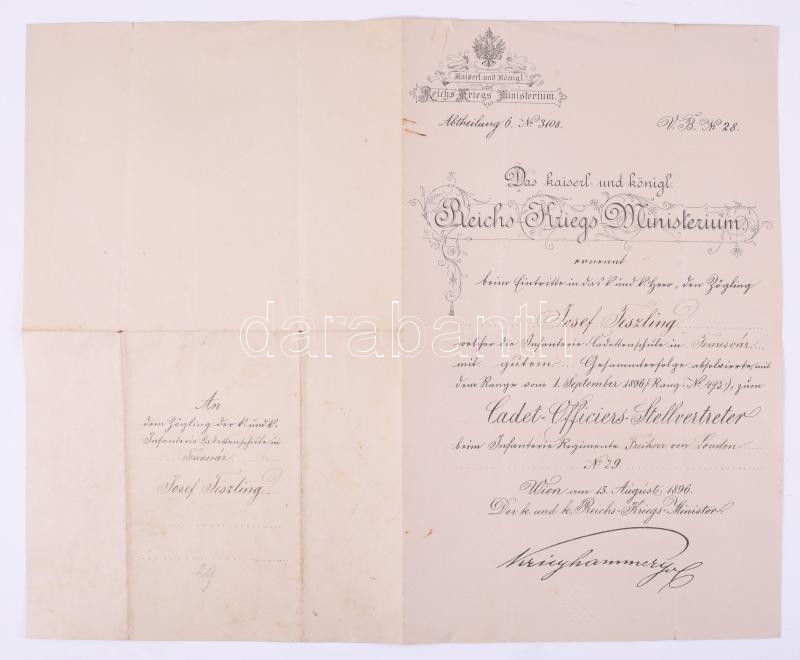 Kaiserl. und Königl.
Reichs Kriegs Ministerium.
Abtheilung 6. № 3108.
V. B. № 28.
Das kaiserl. und königl.
Reichs-Kriegs-Ministerium
ernennt
beim Eintritte in das k. und k. Heer, den Zögling
Josef Teszling
welcher die Infanterie-Cadettenschule in Temesvár
mit gutem Gesammterfolge absolvierte, mit
dem Range vom 1. September 1896 (: Rang-№ 493 :), zum
Cadet-Officiers-Stellvertreter
beim Infanterie Regimente Freiherr von Loudon
№ 29
Wien am 15. August 1896.
Der k. und k. Reichs-Kriegs-Minister
Krieghammer
An
dem Zögling der k. und k.
Infanterie Cadettenschule in
Temesvár
Josef Teszling.
29
darabanth